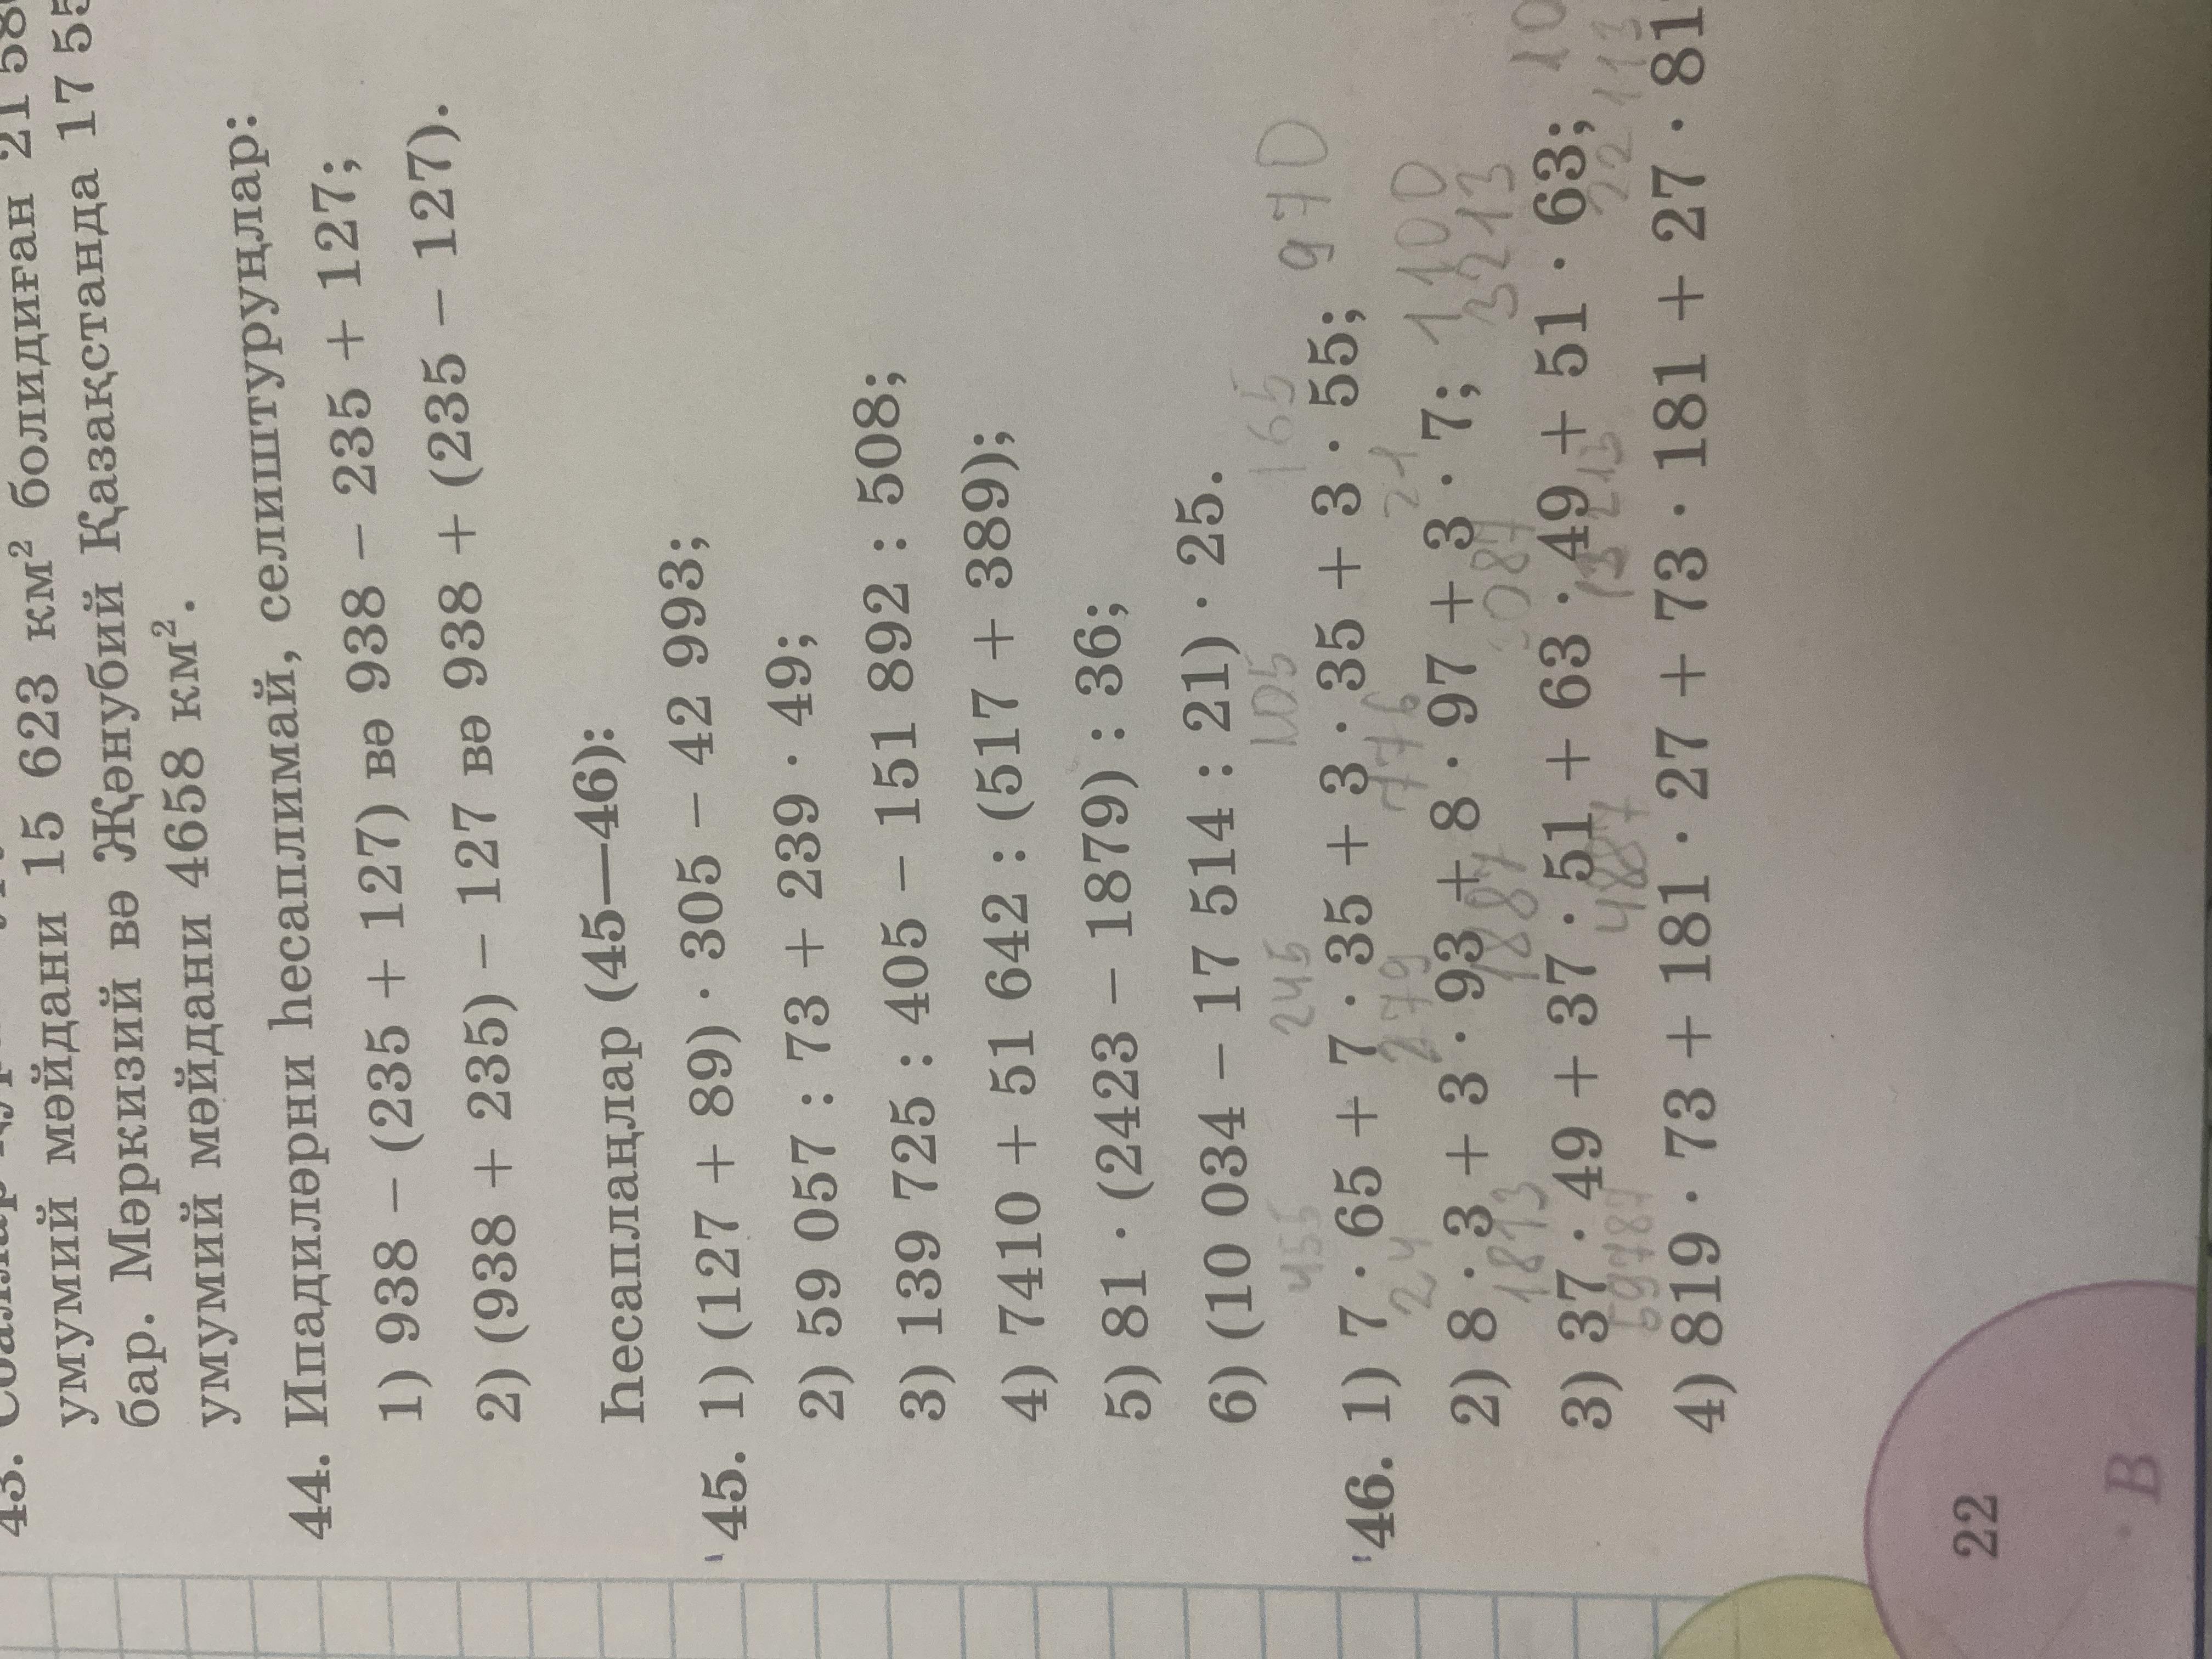 умумий мәйдани 15 623 км² болидиған 21 58
бар. Мәркизий вә Җәнубий Қазақстанда 17 55
умумий мәйдани 4658 км².
44. Ипадиләрни һесаплимай, селиштуруңлар:
1) 938 – (235 + 127) вә 938 – 235 + 127;
2) (938 + 235) – 127 вә 938 + (235 – 127).
Һесаплаңлар (45—46):
45. 1) (127 + 89) · 305 – 42 993;
2) 59 057 : 73 + 239 · 49;
3) 139 725 : 405 – 151 892 : 508;
4) 7410 + 51 642 : (517 + 389);
5) 81 · (2423 – 1879) : 36;
6) (10 034 – 17 514 : 21) · 25.
455 245 105 165
46. 1) 7 · 65 + 7 · 35 + 3 · 35 + 3 · 55; 970
24 279 776 21
2) 8 · 3 + 3 · 93 + 8 · 97 + 3 · 7; 1100
1813 1887 3213
3) 37 · 49 + 37 · 51 + 63 · 49 + 51 · 63; 10
4) 819 · 73 + 181 · 27 + 73 · 181 + 27 · 81
22
B